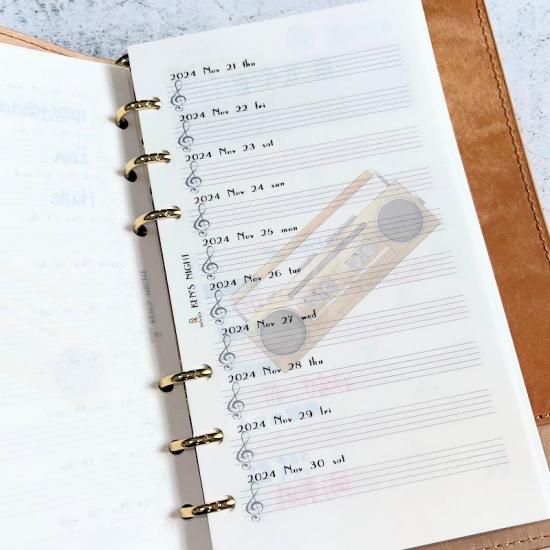 2024 Nov 21 thu
2024 Nov 22 fri
2024 Nov 23 sat
2024 Nov 24 sun
2024 Nov 25 mon
2024 Nov 26 tue
2024 Nov 27 wed
2024 Nov 28 thu
2024 Nov 29 fri
2024 Nov 30 sat
KEN'S NIGHT